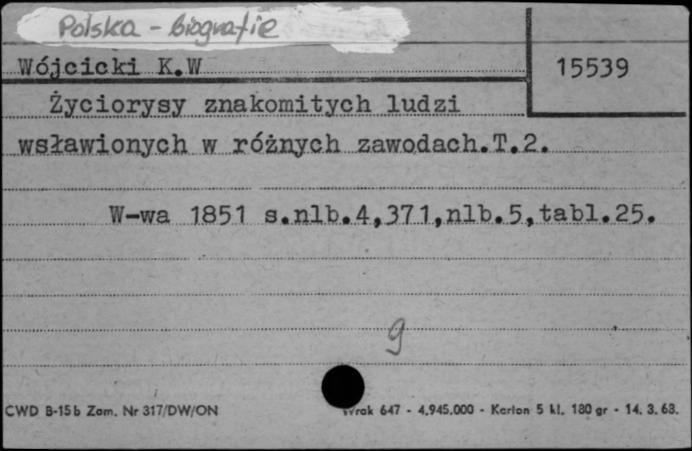 Polska - biografie
Wójcicki K.W
15539
Życiorysy znakomitych ludzi
wsławionych w różnych zawodach.T.2.
W-wa 1851 s.nlb.4,371,nlb.5,tabl.25.
9
CWD B-15b Zam. Nr 317/DW/ON
647 - 4.945.000 - Karton 5 kl. 180 gr - 14. 3. 63.